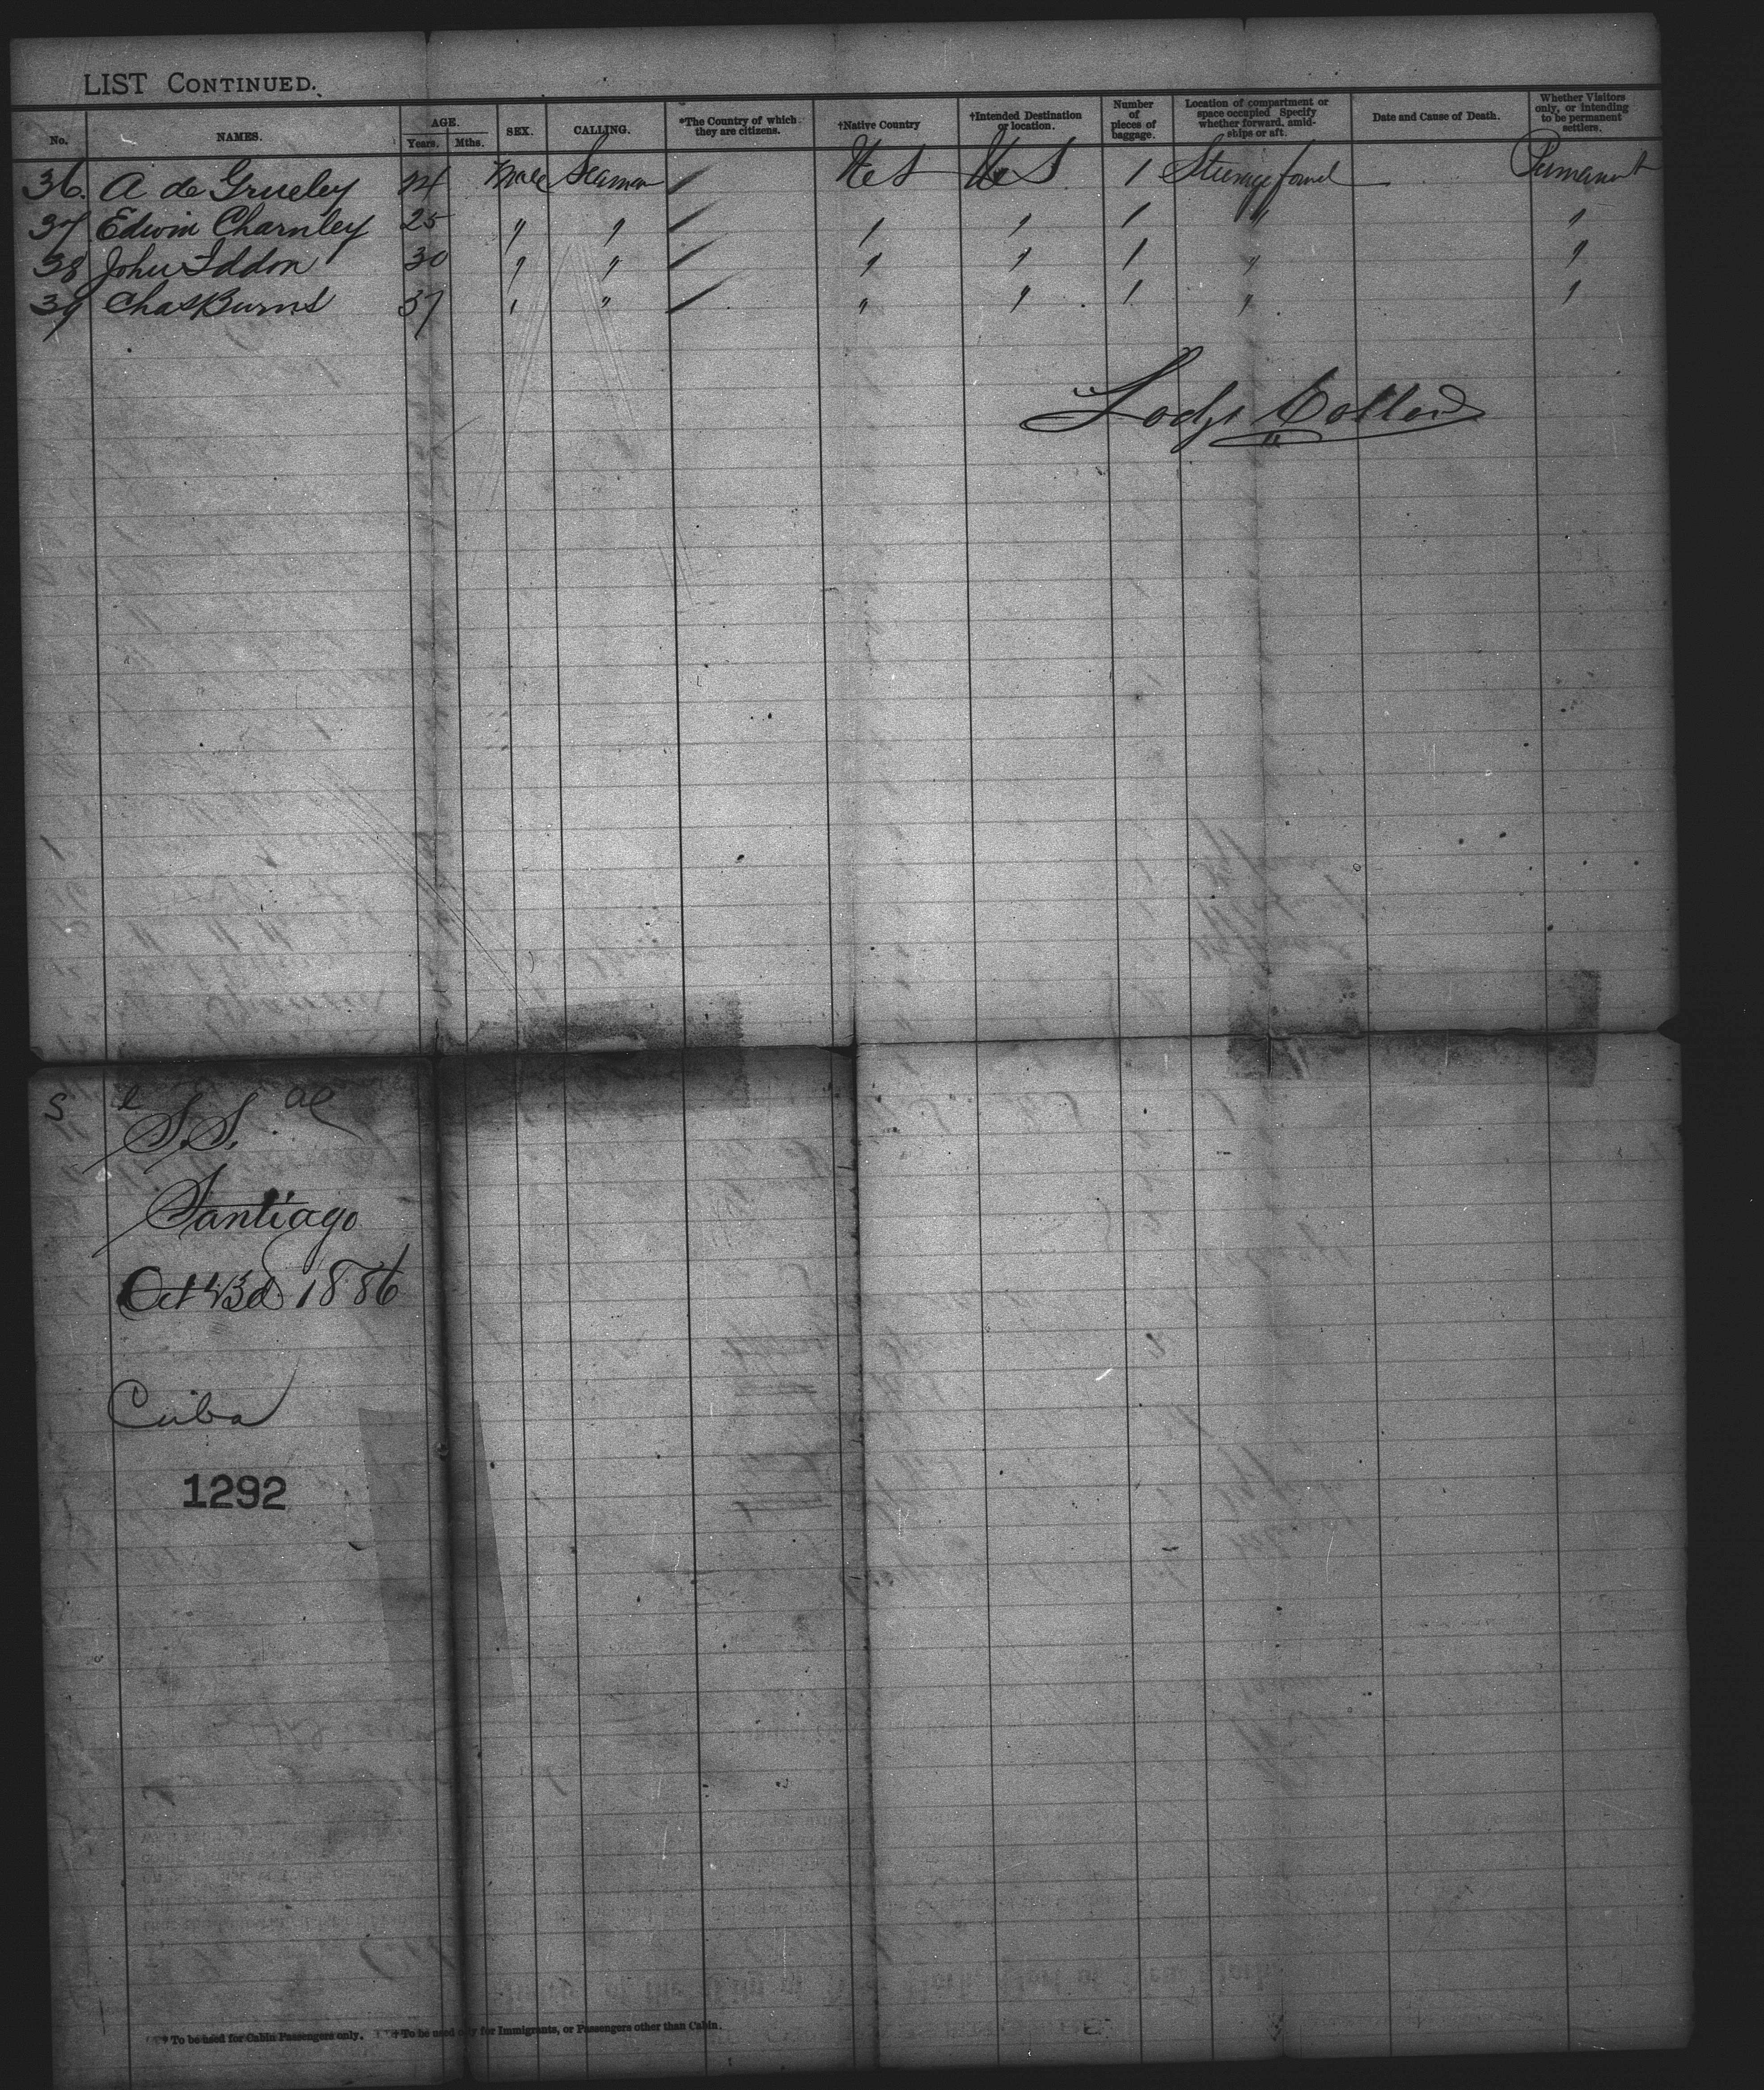 LIST CONTINUED.
No. NAMES. AGE. Years. Mths. SEX. CALLING. *The Country of which they are citizens. †Native Country †Intended Destination or location. Number of pieces of baggage. Location of compartment or space occupied Specify whether forward, amid-ships or aft. Date and Cause of Death. Whether Visitors only, or intending to be permanent settlers.
36. A de Grueley 24 Male Seaman U.S U.S 1 Steerage forwd Permanent
37 Edwin Charnley 25 " " " " 1 " "
38 John Iddon 30 " " " " 1 " "
39 Chas Burns 37 " " " " 1 " "
S.S.
Santiago
Oct 1886
Cuba
1292
* To be used for Cabin Passengers only. † To be used only for Immigrants, or Passengers other than Cabin.